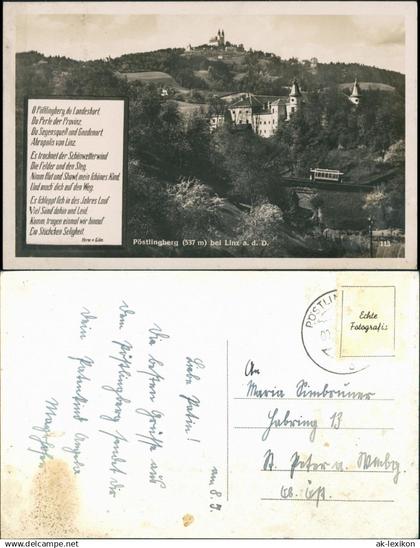 O Pöstlingberg, du Landeshort.
Du Perle der Provinz.
Du Segensquell und Gnadenort
Akropolis von Linz.
Es trocknet der Schönwetterwind
Die Felder und den Steg,
Nimm Hut und Shawl, mein schönes Kind,
Und mach dich auf den Weg.
Es schleppt sich in des Jahres Lauf
Viel Sünd dahin und Leid.
Komm, tragen einmal wir hinauf
Ein Stückchen Seligkeit
Herm. v. Gilm.
Pöstlingberg (537 m) bei Linz a. d. D.
113
Liebe Patin!
Die besten Grüße aus
dem Pöstlingberg sendet dir
dein Patenkind Angela
am 8. 7.
PÖSTLIN
Echte
Fotografie
An
Maria Simbrunner
13
St. Peter a. Wmbg
Ob. Öst.
ak-lexikon
© www.ak-lexikon.de